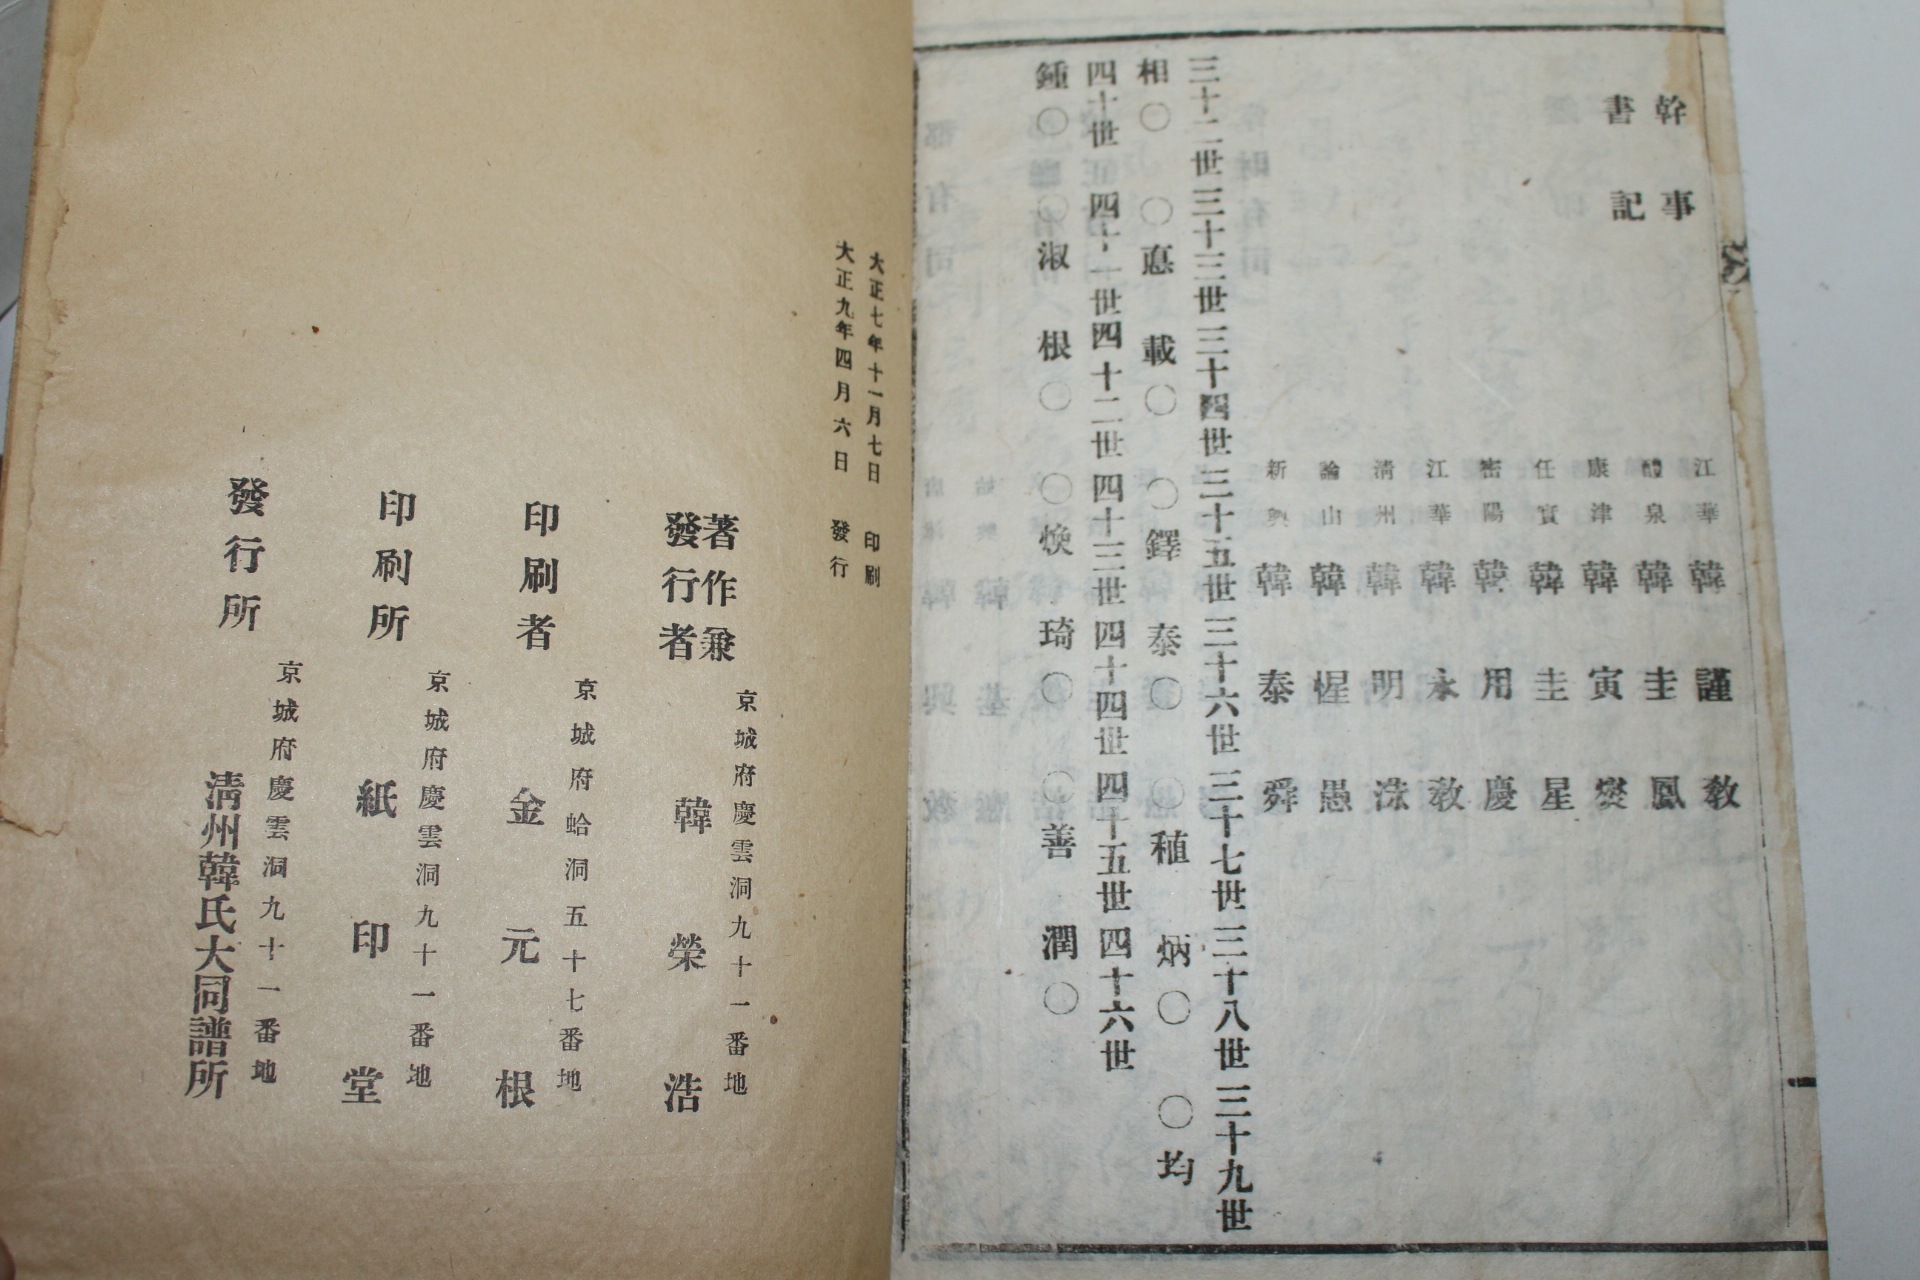 幹事
書記
江華 韓謹敎
醴泉 韓圭鳳
康津 韓寅燮
任實 韓圭星
密陽 韓用慶
江華 韓永敎
清州 韓明洙
論山 韓惺愚
新興 韓泰舜
三十二世三十三世三十四世三十五世三十六世三十七世三十八世三十九世
相〇 〇悳 載〇 〇鐸 泰〇 〇稙 炳〇 〇均
四十世四十一世四十二世四十三世四十四世四十五世四十六世
鍾〇 〇淑 根〇 〇煥 琦〇 〇善 潤〇
大正七年十一月七日 印刷
大正九年四月六日 發行
著作兼
發行者
京城府慶雲洞九十一番地
韓榮浩
印刷者
京城府蛤洞五十七番地
金元根
印刷所
京城府慶雲洞九十一番地
紙印堂
發行所
京城府慶雲洞九十一番地
清州韓氏大同譜所